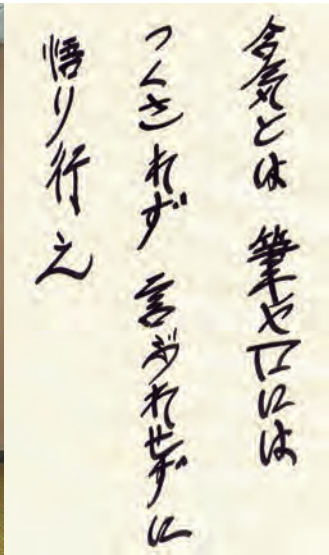 合気とは 筆や口には
つくされず 言ぶれせずに
悟り行え